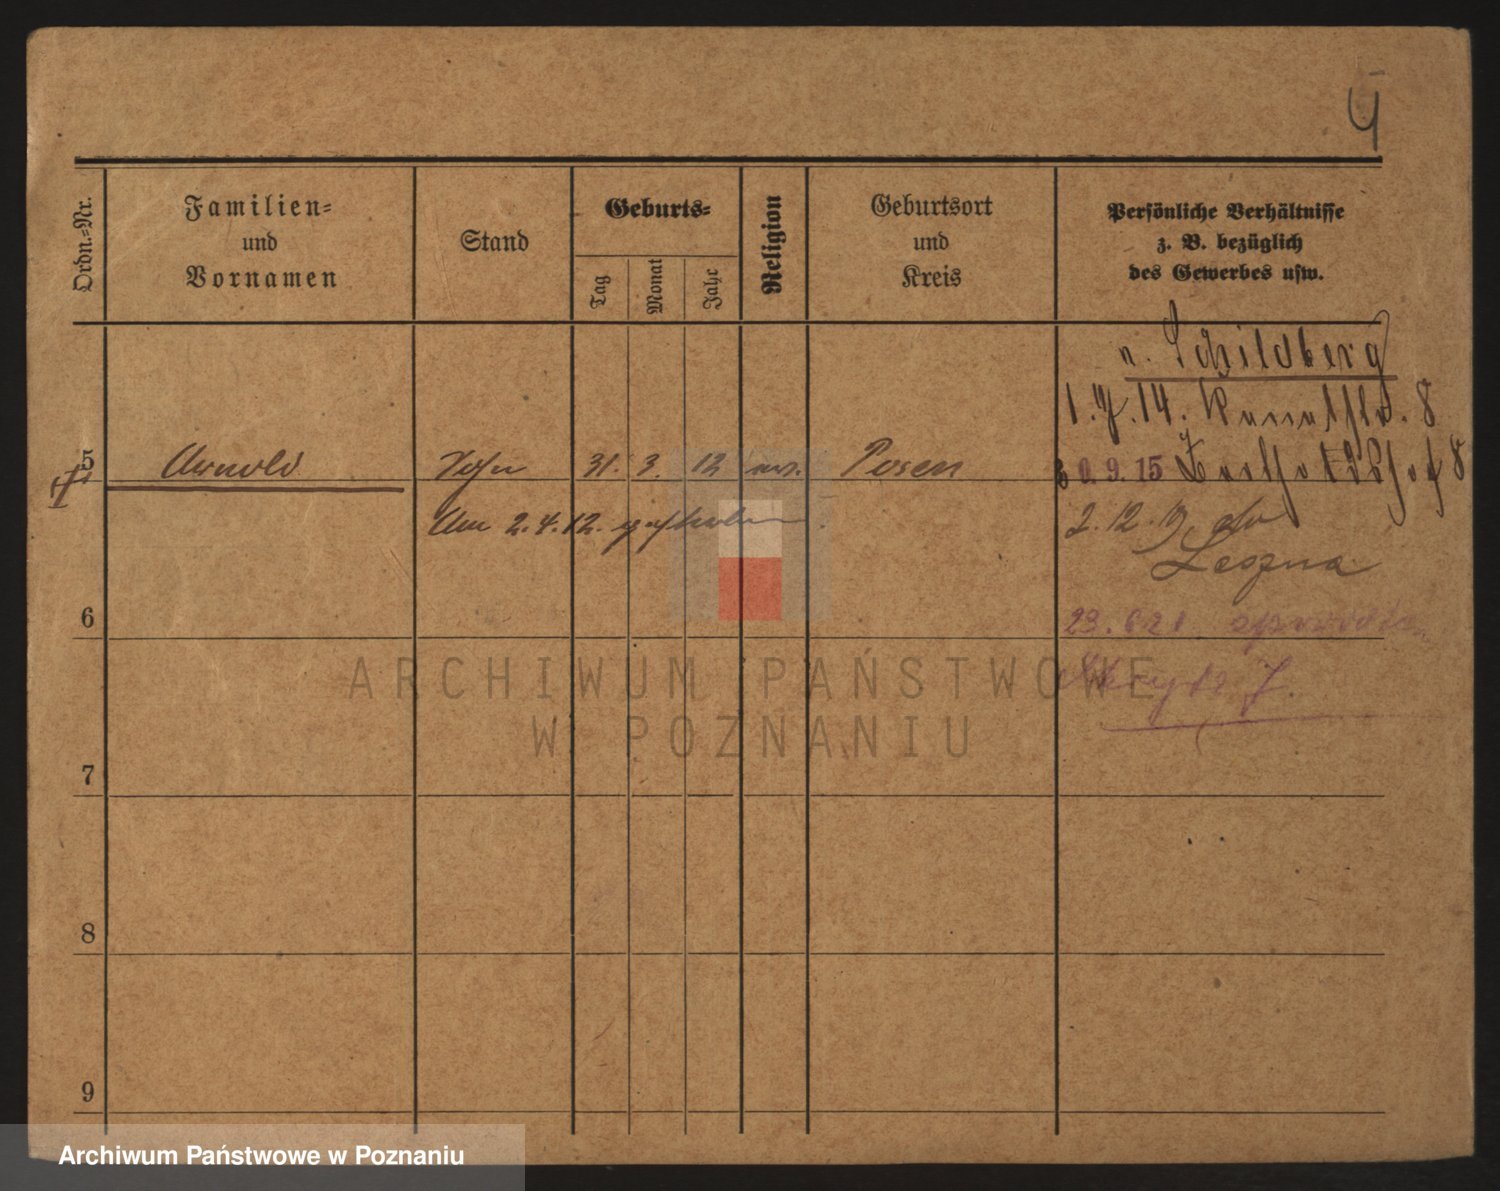 4
Ordn.-Nr.
Familien-
und
Vornamen
Stand
Geburts-
Tag
Monat
Jahr
Religion
Geburtsort
und
Kreis
Persönliche Verhältnisse
z. B. bezüglich
des Gewerbes usw.
n. Schildberg
1.7.14. Kanalstr. 8
5 Arnold Sohn 31. 3. 12 Posen
30.9.15 8
Am 2.4.12. gestorben.
2.12.19. do
Leszna
6
23.
7
8
9
ARCHIWUM PAŃSTWOWE
W POZNANIU
Archiwum Państwowe w Poznaniu